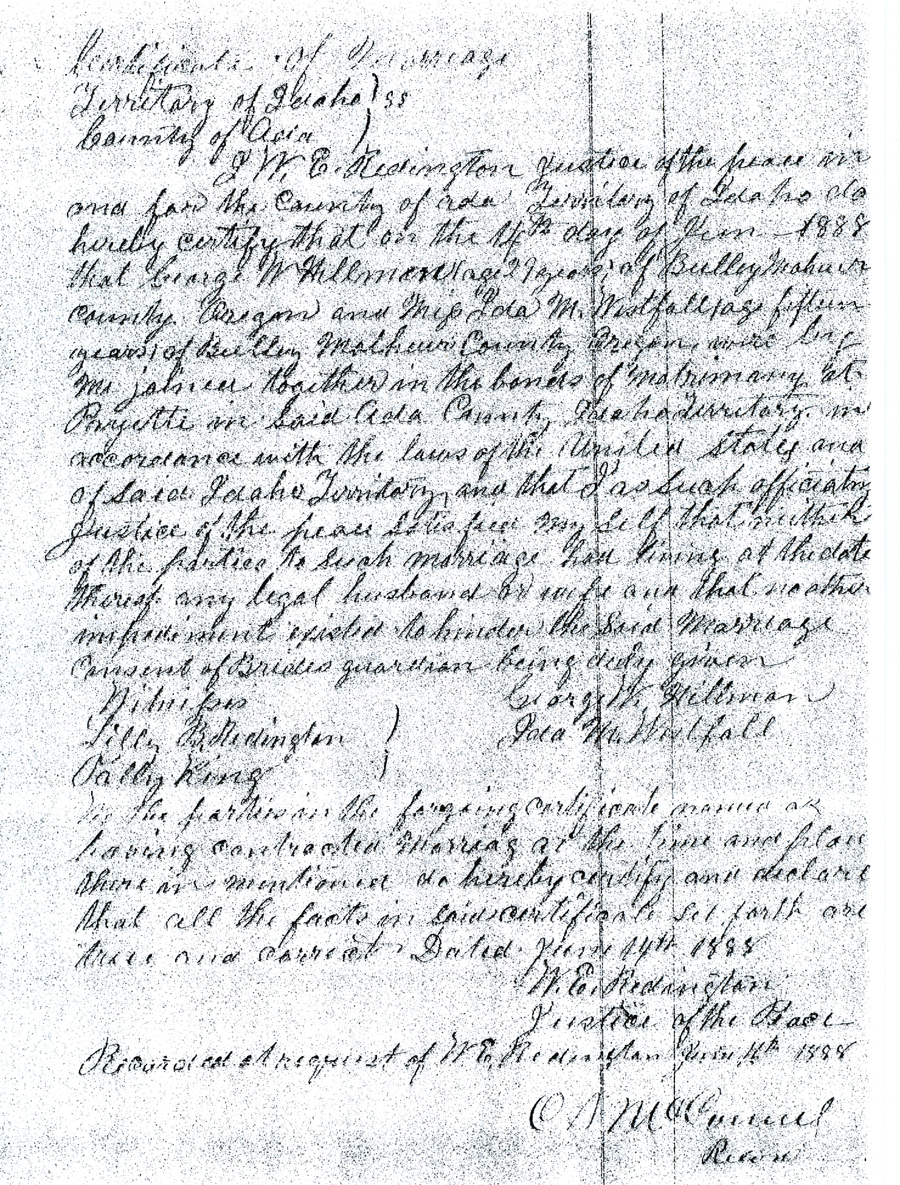 Certificate of Marriage
Territory of Idaho ) ss
County of Ada )
I W. E. Redington Justice of the peace in
and for the County of Ada Territory of Idaho do
hereby certify that on the 14th day of June 1888
that George W Hillman (age 29 years) of Bulley Malheur
county Oregon and Miss Ida M. Westfall (age fifteen
years) of Bulley Malheur County Oregon, were by
me joined together in the bonds of matrimony at
Payette in Said Ada County Idaho Territory, in
accordance with the laws of the United States and
of Said Idaho Territory, and that I as such officiating
Justice of the peace satisfied my self that neither
of the parties to such marriage had living at the date
thereof any legal husband or wife and that no other
impediment existed to hinder the Said Marriage
Consent of Brides guardian being duly given
Witness George W. Hillman
Lilly B. Redington ) Ida M. Westfall
King
We the parties in the forgoing certificate named as
having contracted Marriag at the time and place
there in mentioned do hereby certify and declare
that all the facts in said certificate set forth are
true and correct Dated June 14th 1888
W. E. Redington
Justice of the Peace
Recorded at request of W. E. Redington June 1888
McConnel